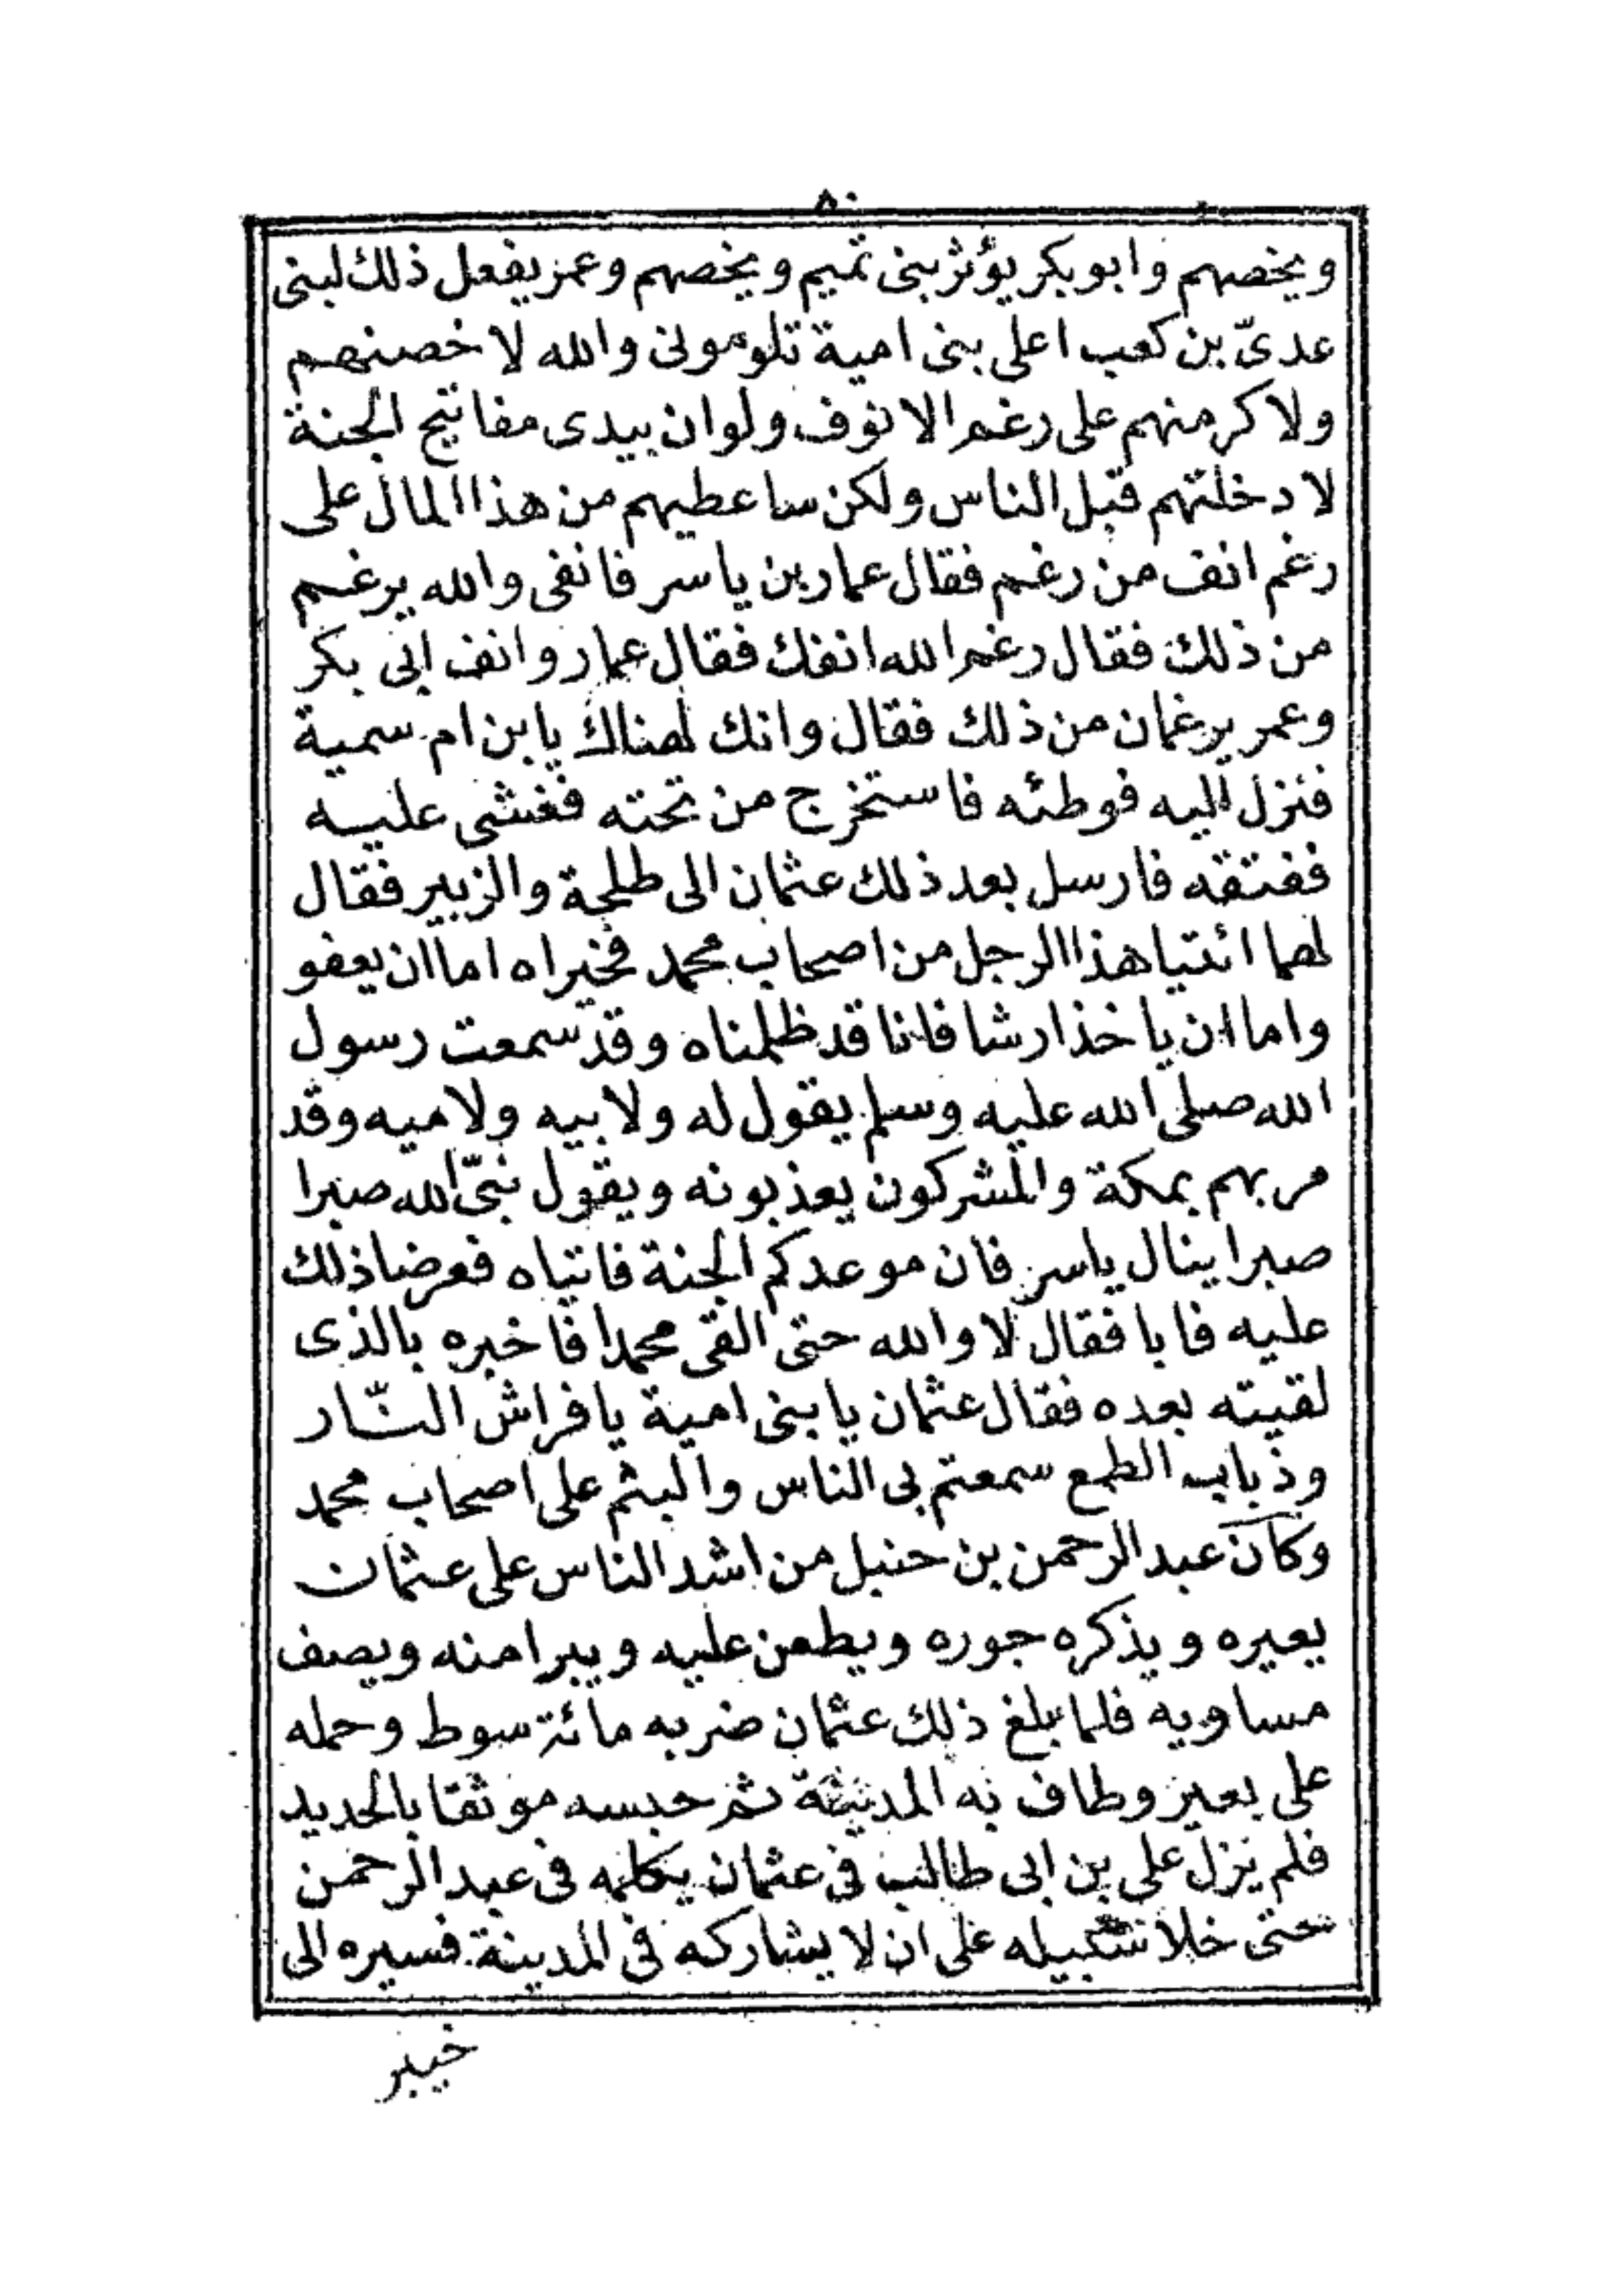 ٨٠
ويخصهم وابو بكر يؤثر بنى تميم ويخصهم وعمر يفعل ذلك لبنى
عدىّ بن كعب اعلى بنى امية تلومونى والله لاخصنهم
ولاكرمنهم على رغم الانوف ولو ان بيدى مفاتيح الجنة
لادخلتهم قبل الناس ولكن ساعطيهم من هذا المال على
رغم انف من رغم فقال عمار بن ياسر فانفى والله يرغم
من ذلك فقال رغم الله انفك فقال عمار وانف ابى بكر
وعمر يرغمان من ذلك فقال وانك لهناك يا بن ام سمية
فنزل اليه فوطئه فاستخرج من تحته فغشى عليه
ففتقه فارسل بعد ذلك عثمان الى طلحة والزبير فقال
لهما ائتيا هذا الرجل من اصحاب محمد فخيراه اما ان يعفو
واما ان ياخذ ارشا فانا قد ظلمناه وقد سمعت رسول
الله صلى الله عليه وسلم يقول له ولابيه ولاميه وقد
مر بهم بمكة والمشركون يعذبونه ويقول نبىّ الله صبرا
صبرا ينال ياسر فان موعدكم الجنة فاتياه فعرضا ذلك
عليه فابا فقال لا والله حتى القى محمدا فاخبره بالذى
لقيته بعده فقال عثمان يا بنى امية يا فراش النّار
وذباب الطمع سمعتم بى الناس والبثم على اصحاب محمد
وكان عبد الرحمن بن حنبل من اشد الناس على عثمان
يعيره ويذكره جوره ويطعن عليه ويبرا منه ويصف
مساويه فلما بلغ ذلك عثمان ضربه مائة سوط وحمله
على بعير وطاف به المدينة ثم حبسه موثقا بالحديد
فلم يزل على بن ابى طالب فى عثمان يكلمه فى عبد الرحمن
حتى خلا سبيله على ان لا يشاركه فى المدينة فسيره الى
خيبر